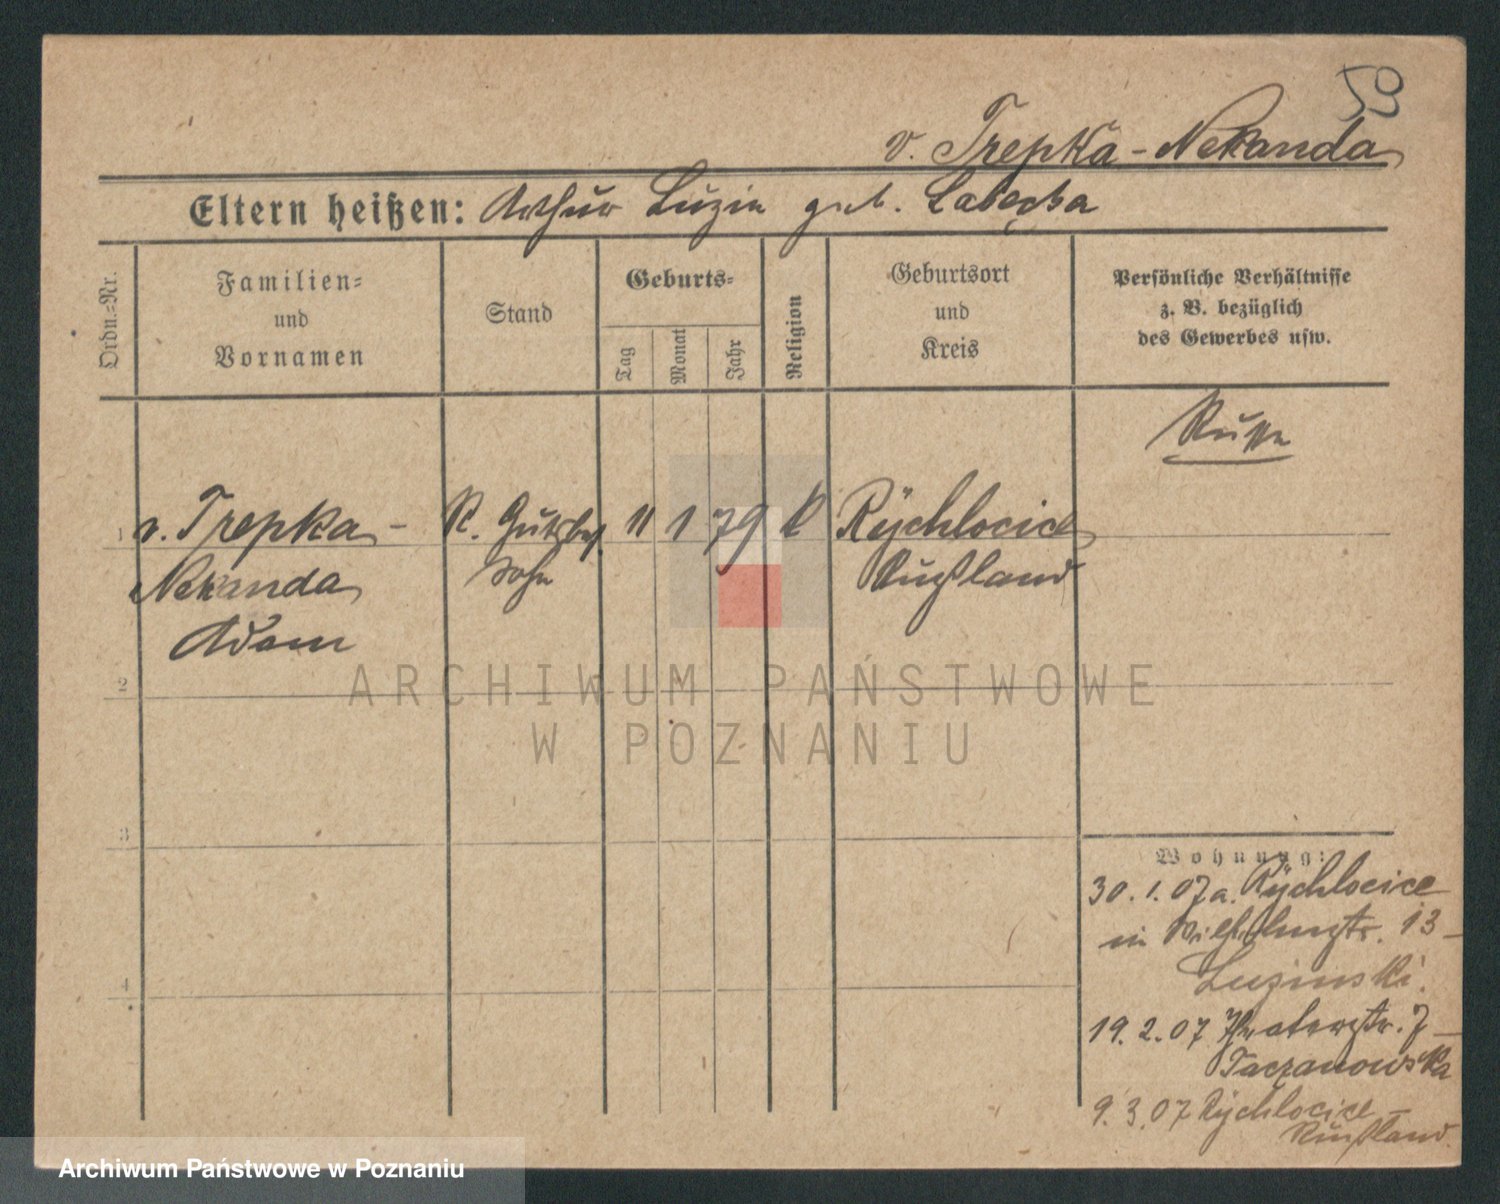 59
v. Trepka-Nekanda
Eltern heißen: Arthur Luzie geb. Labęcka
Ordn.-Nr.
Familien-
und
Vornamen
Stand
Geburts-
Tag
Monat
Jahr
Religion
Geburtsort
und
Kreis
Persönliche Verhältnisse
z. B. bezüglich
des Gewerbes usw.
Russe
1 v. Trepka- R. Gutsbes. 11 1 79 k Rychlocice
Nekanda Sohn Rußland
Adam
2
3
4
Wohnung:
30.1.07 a. Rychlocice
in Wilhelmstr. 13 -
Luzinski.
19.2.07 Theaterstr. 7 -
Taczanowska
9.3.07 Rychlocice -
Rußland.
ARCHIWUM PAŃSTWOWE
W POZNANIU
Archiwum Państwowe w Poznaniu